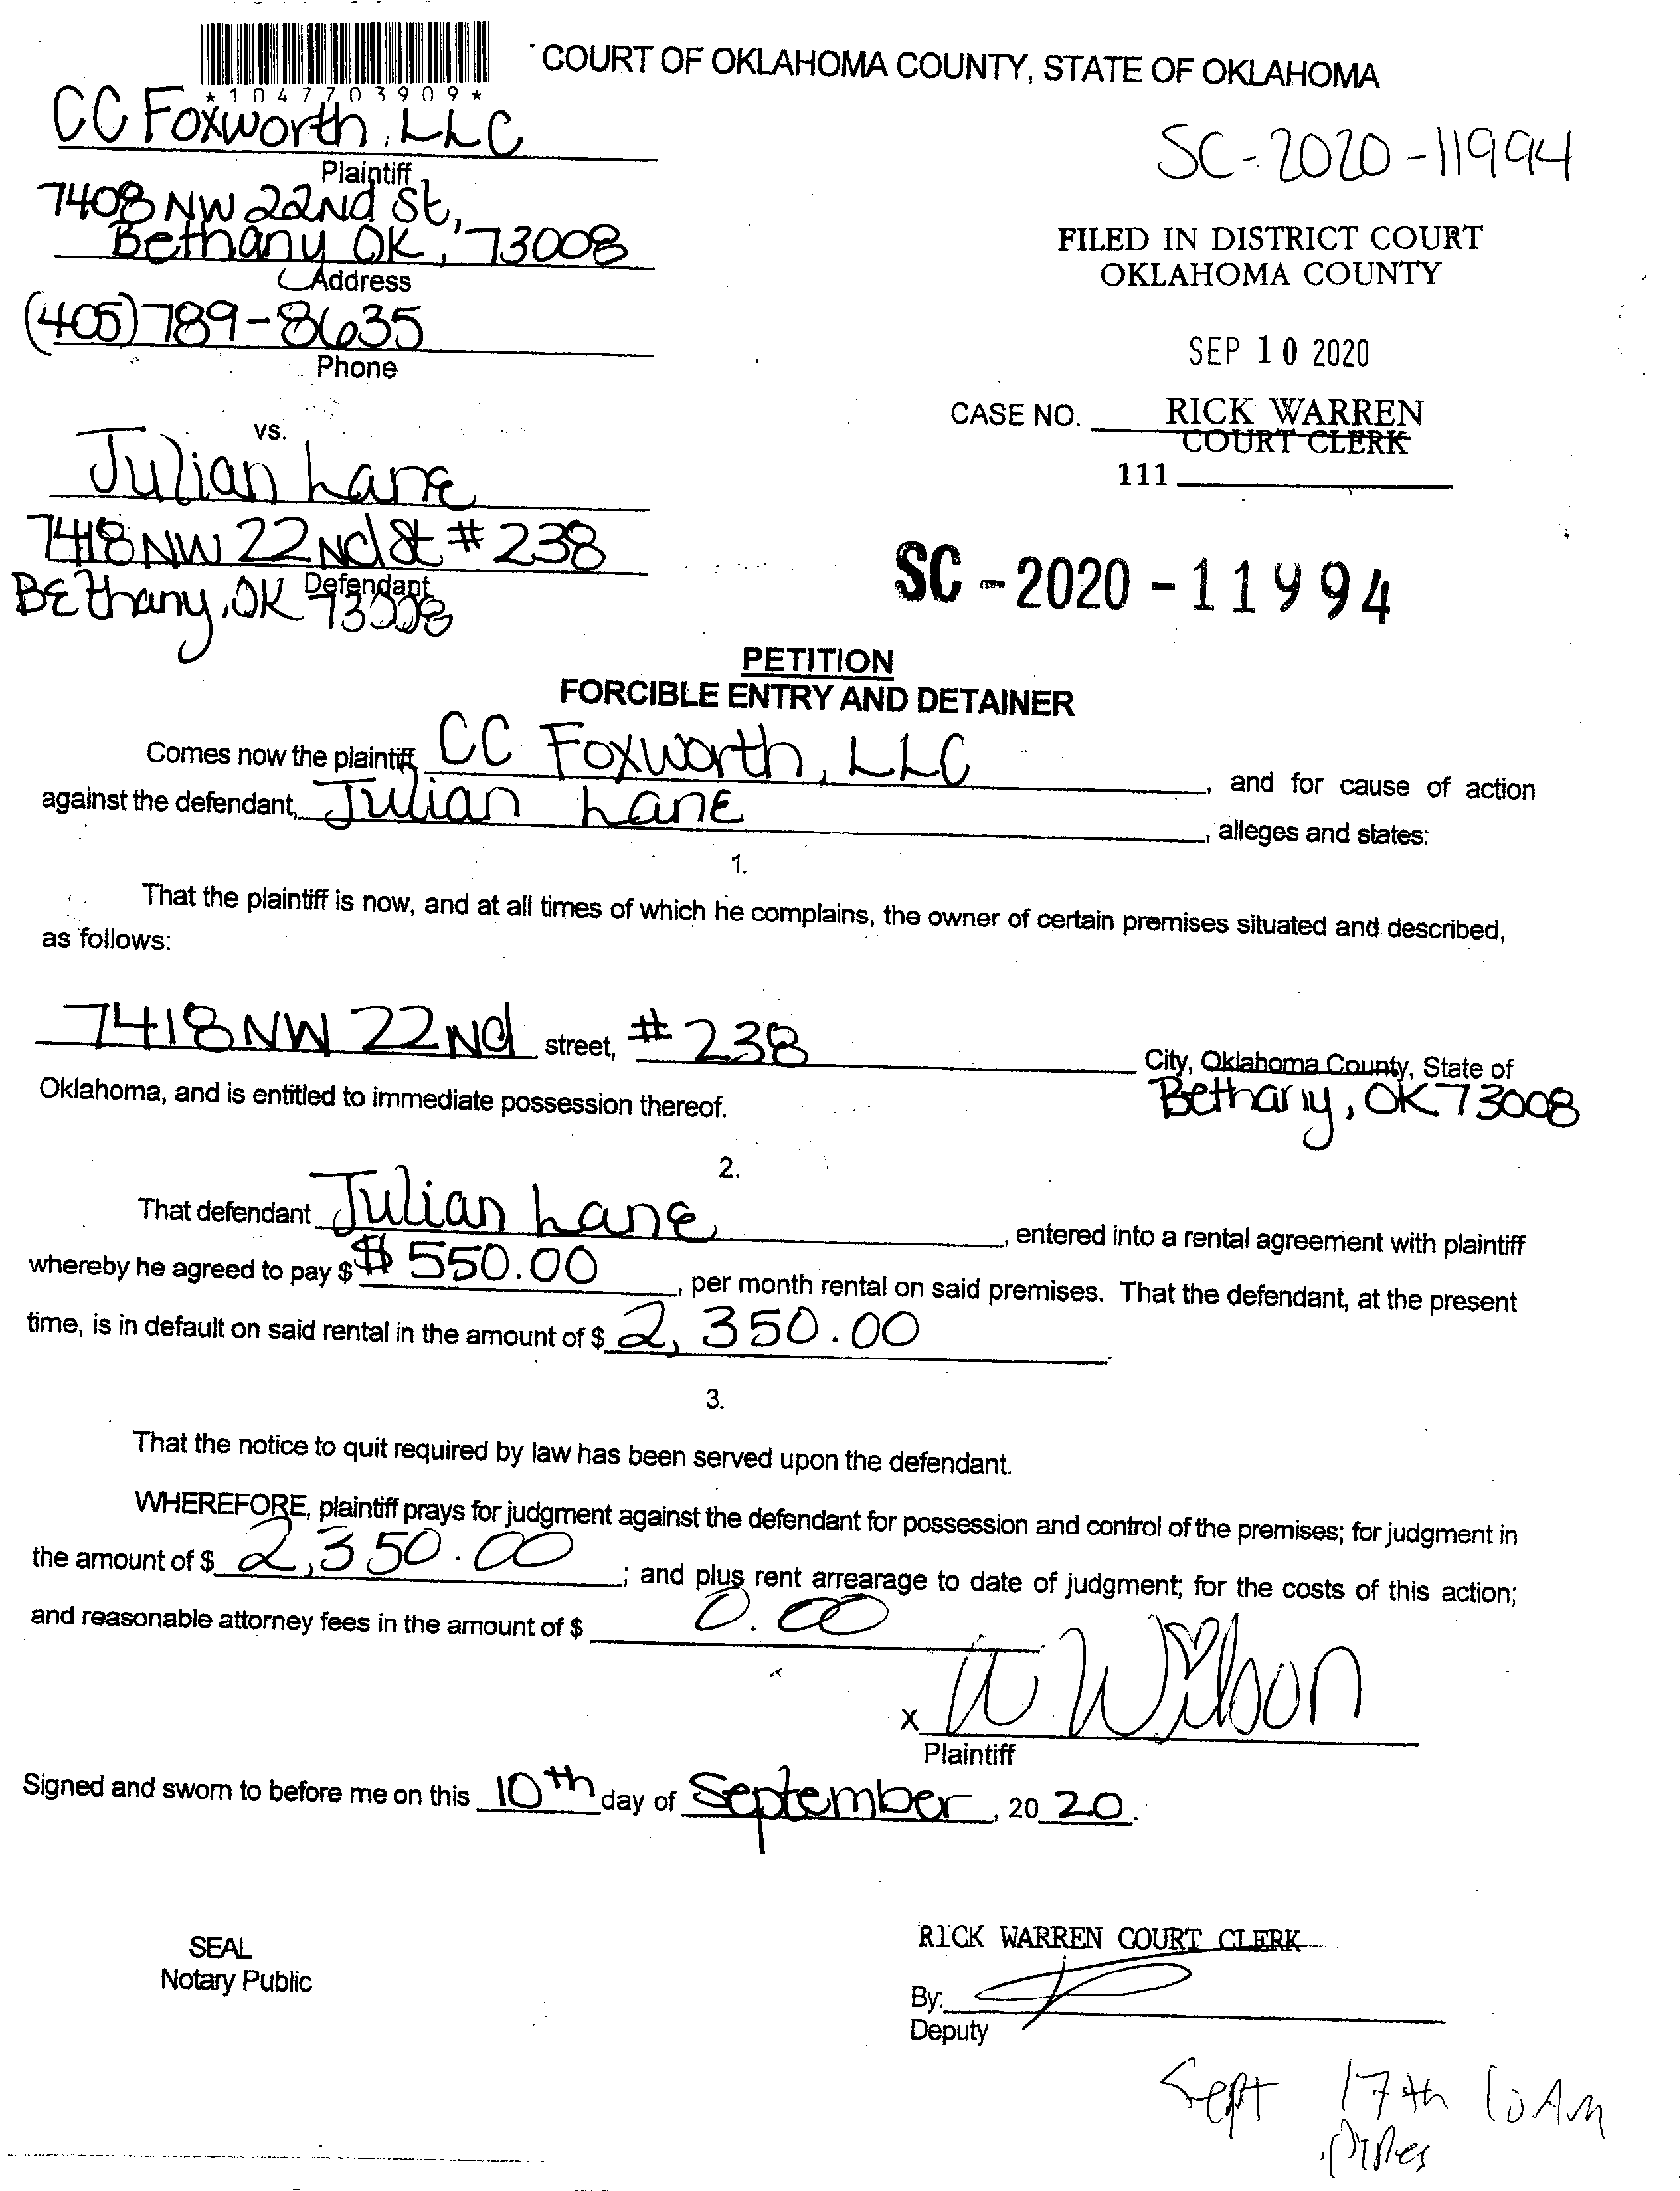 *1047703909*
COURT OF OKLAHOMA COUNTY, STATE OF OKLAHOMA
CC Foxworth, LLC
Plaintiff
SC-2020-11994
7408 NW 22Nd St,
Bethany OK, 73008
Address
FILED IN DISTRICT COURT
OKLAHOMA COUNTY
(405)789-8635
Phone
SEP 10 2020
CASE NO.
RICK WARREN
COURT CLERK
111
vs.
Julian Lane
7418 NW 22Nd St #238
Defendant
Bethany, OK 73008
SC-2020-11994
PETITION
FORCIBLE ENTRY AND DETAINER
Comes now the plaintiff, CC Foxworth, LLC, and for cause of action
against the defendant, Julian Lane, alleges and states:
1.
That the plaintiff is now, and at all times of which he complains, the owner of certain premises situated and described,
as follows:
7418 NW 22Nd street, #238 City, Oklahoma County, State of
Bethany, OK 73008
Oklahoma, and is entitled to immediate possession thereof.
2.
That defendant Julian Lane, entered into a rental agreement with plaintiff
whereby he agreed to pay $ $550.00, per month rental on said premises. That the defendant, at the present
time, is in default on said rental in the amount of $ 2,350.00.
3.
That the notice to quit required by law has been served upon the defendant.
WHEREFORE, plaintiff prays for judgment against the defendant for possession and control of the premises; for judgment in
the amount of $ 2,350.00; and plus rent arrearage to date of judgment; for the costs of this action;
and reasonable attorney fees in the amount of $ 0.00
x A Wilson
Plaintiff
Signed and sworn to before me on this 10th day of September, 20 20.
SEAL
Notary Public
RICK WARREN COURT CLERK
By:
Deputy
Sept 17th 10 AM